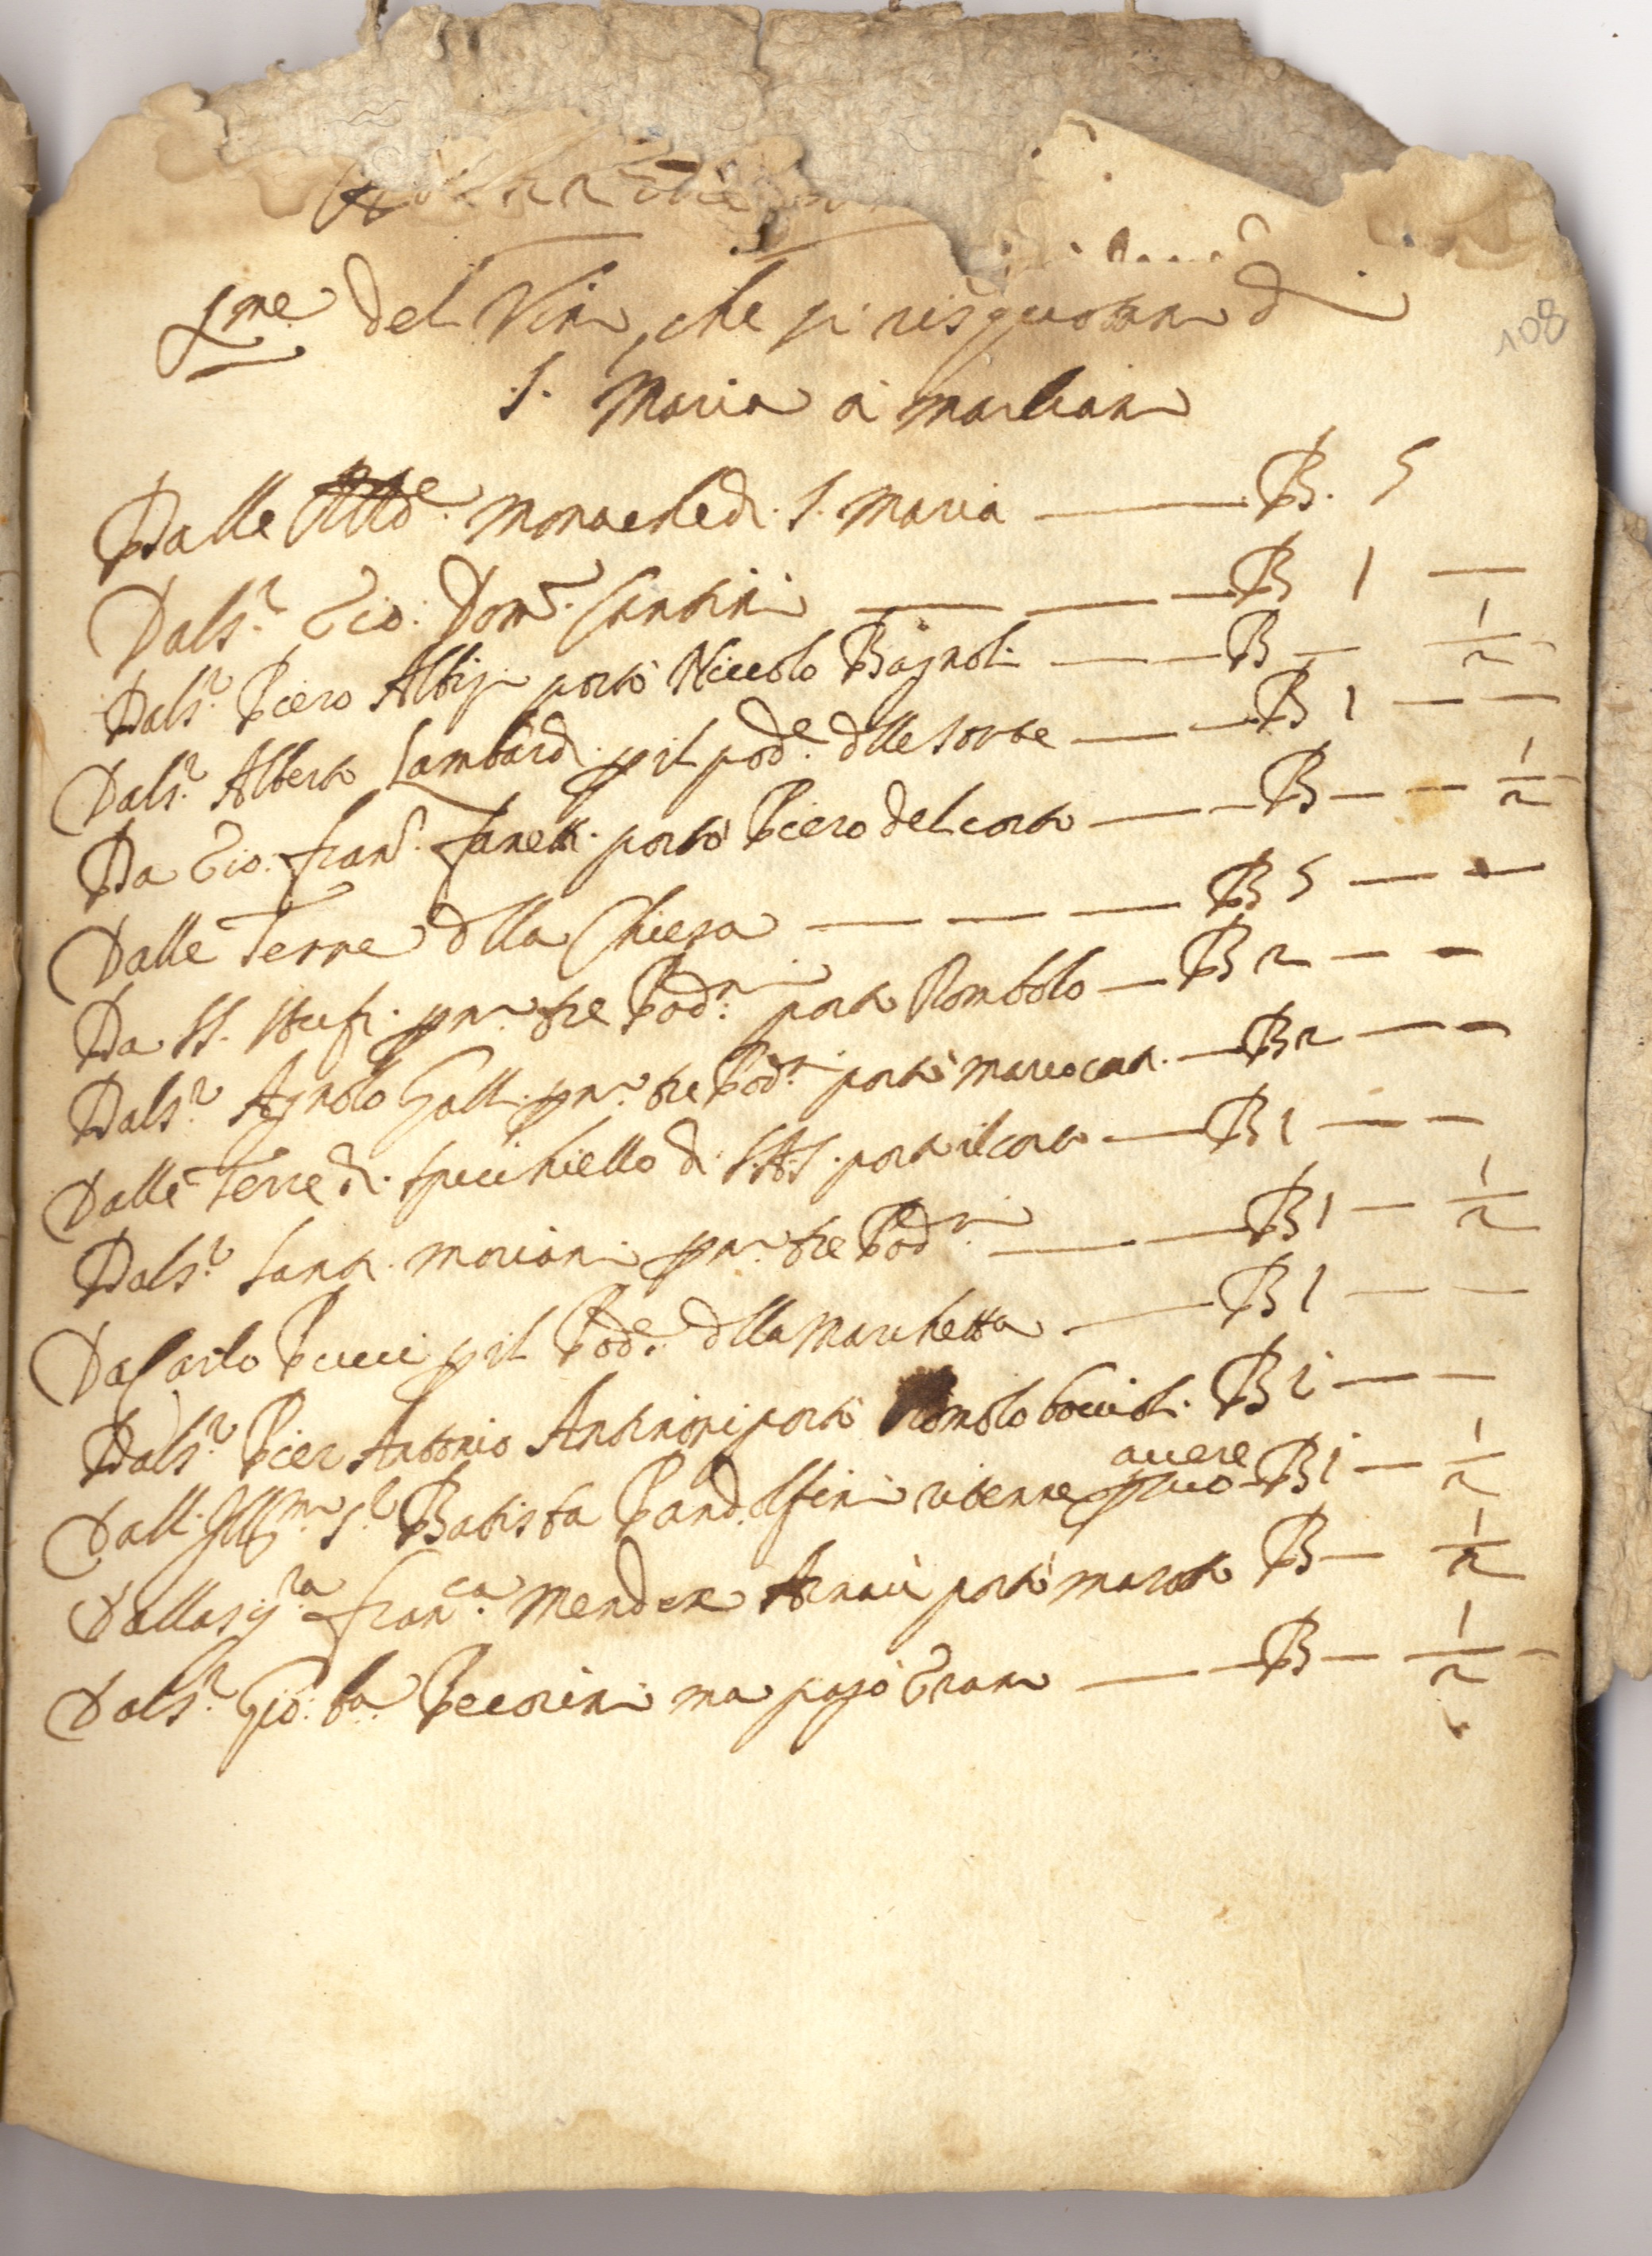 del Vino, che si risquotano d
S. Maria à Marliano
108
Dalle Rde. Monache di S. Maria B. 5
Dal Sr. Gio: Domco. Santini B 1
Dal Sr. Piero Albizi portò Niccolo Bagnoli B 1/2
Dal Sr. Alberto Lambardi p il pode. dlle sorbe B 1
Da Gio. Franco. Zanetti portò Piero del corto B 1/2
Dalle Terre dlla Chiesa B 5
Da SS. tre Podri. porto Rombolo B 2
Dal Sr. Agnolo Galli tre Podri. portò Marco B 2
Dalle Terre di Spicchiello di S.A.S. porto il corto B 1
Dal Sr. Santi Moriani tre Podri. B 1 1/2
Da Carlo Pucci p il Pode. dlla Marchetta B 1
Dal Sr. Pier Antonio Antinori portò Romolo B 1
Dall Illmo. Sr. Batista Pandolfini ritenne B 1 1/2
avere
Dalla Sigra. Franca. Mendez portò B 1/2
Dal Sr. Gio: ba. Pecorini ma pagò Grano B 1/2